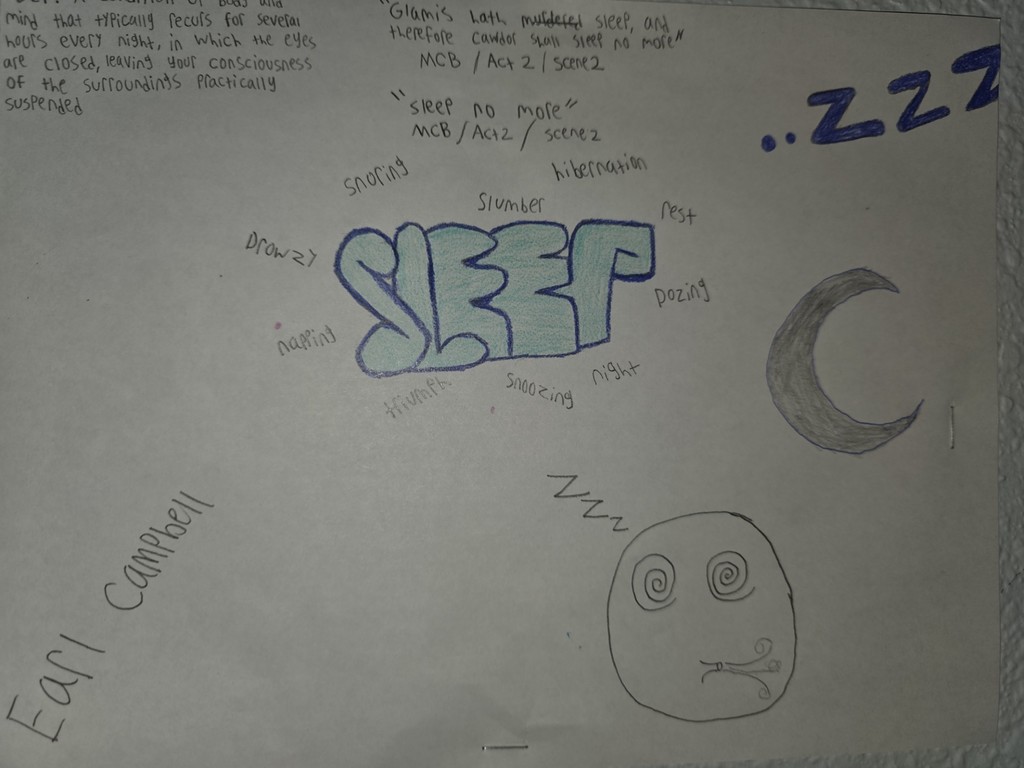 mind that typically recurs for several
hours every night, in which the eyes
are closed, leaving your consciousness
of the surroundings practically
suspended
"Glamis hath murdered sleep, and
therefore cawdor shall sleep no more"
MCB / Act 2 / scene 2
"sleep no more"
MCB / Act 2 / scene 2
..zzz
snoring
hibernation
Slumber
rest
Drowzy
SLEEP
Dozing
napping
night
snoozing
zzz
Earl Campbell